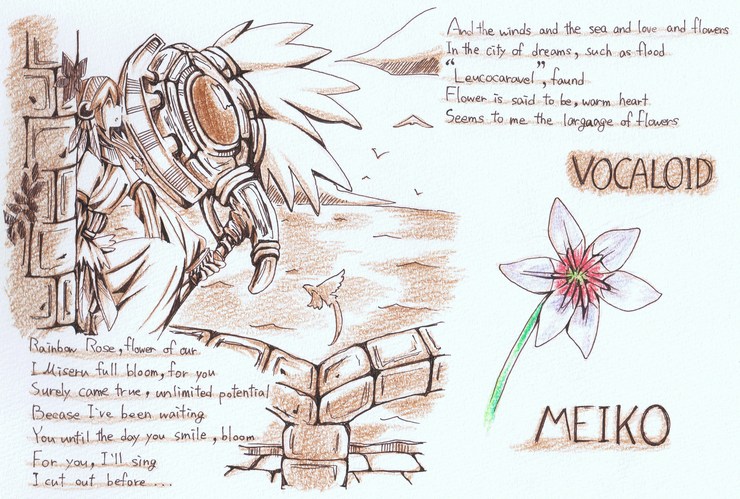 And the winds and the sea and love and flowers
In the city of dreams, such as flood
"Leucocaravel", faund
Flower is said to be, warm heart
Seems to me the largauge of flowers
VOCALOID
Rainbow Rose, flower of our
I Miseru full bloom, for you
Surely came true, unlimited potential
Becase I've been waiting
You until the day you smile, bloom
For you, I'll sing
I cut out before ...
MEIKO